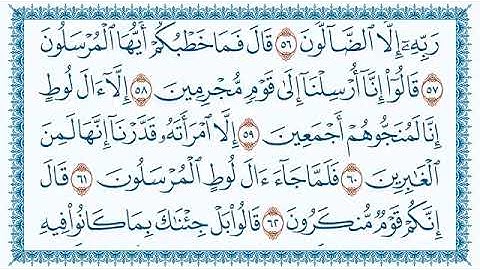 رَبِّهِۦٓ إِلَّا ٱلضَّآلُّونَ ٥٦ قَالَ فَمَا خَطْبُكُمْ أَيُّهَا ٱلْمُرْسَلُونَ
٥٧ قَالُوٓا۟ إِنَّآ أُرْسِلْنَآ إِلَىٰ قَوْمٍ مُّجْرِمِينَ ٥٨ إِلَّآ ءَالَ لُوطٍ
إِنَّا لَمُنَجُّوهُمْ أَجْمَعِينَ ٥٩ إِلَّا ٱمْرَأَتَهُۥ قَدَّرْنَآ إِنَّهَا لَمِنَ
ٱلْغَٰبِرِينَ ٦٠ فَلَمَّا جَآءَ ءَالَ لُوطٍ ٱلْمُرْسَلُونَ ٦١ قَالَ
إِنَّكُمْ قَوْمٌ مُّنكَرُونَ ٦٢ قَالُوا۟ بَلْ جِئْنَٰكَ بِمَا كَانُوا۟ فِيهِ